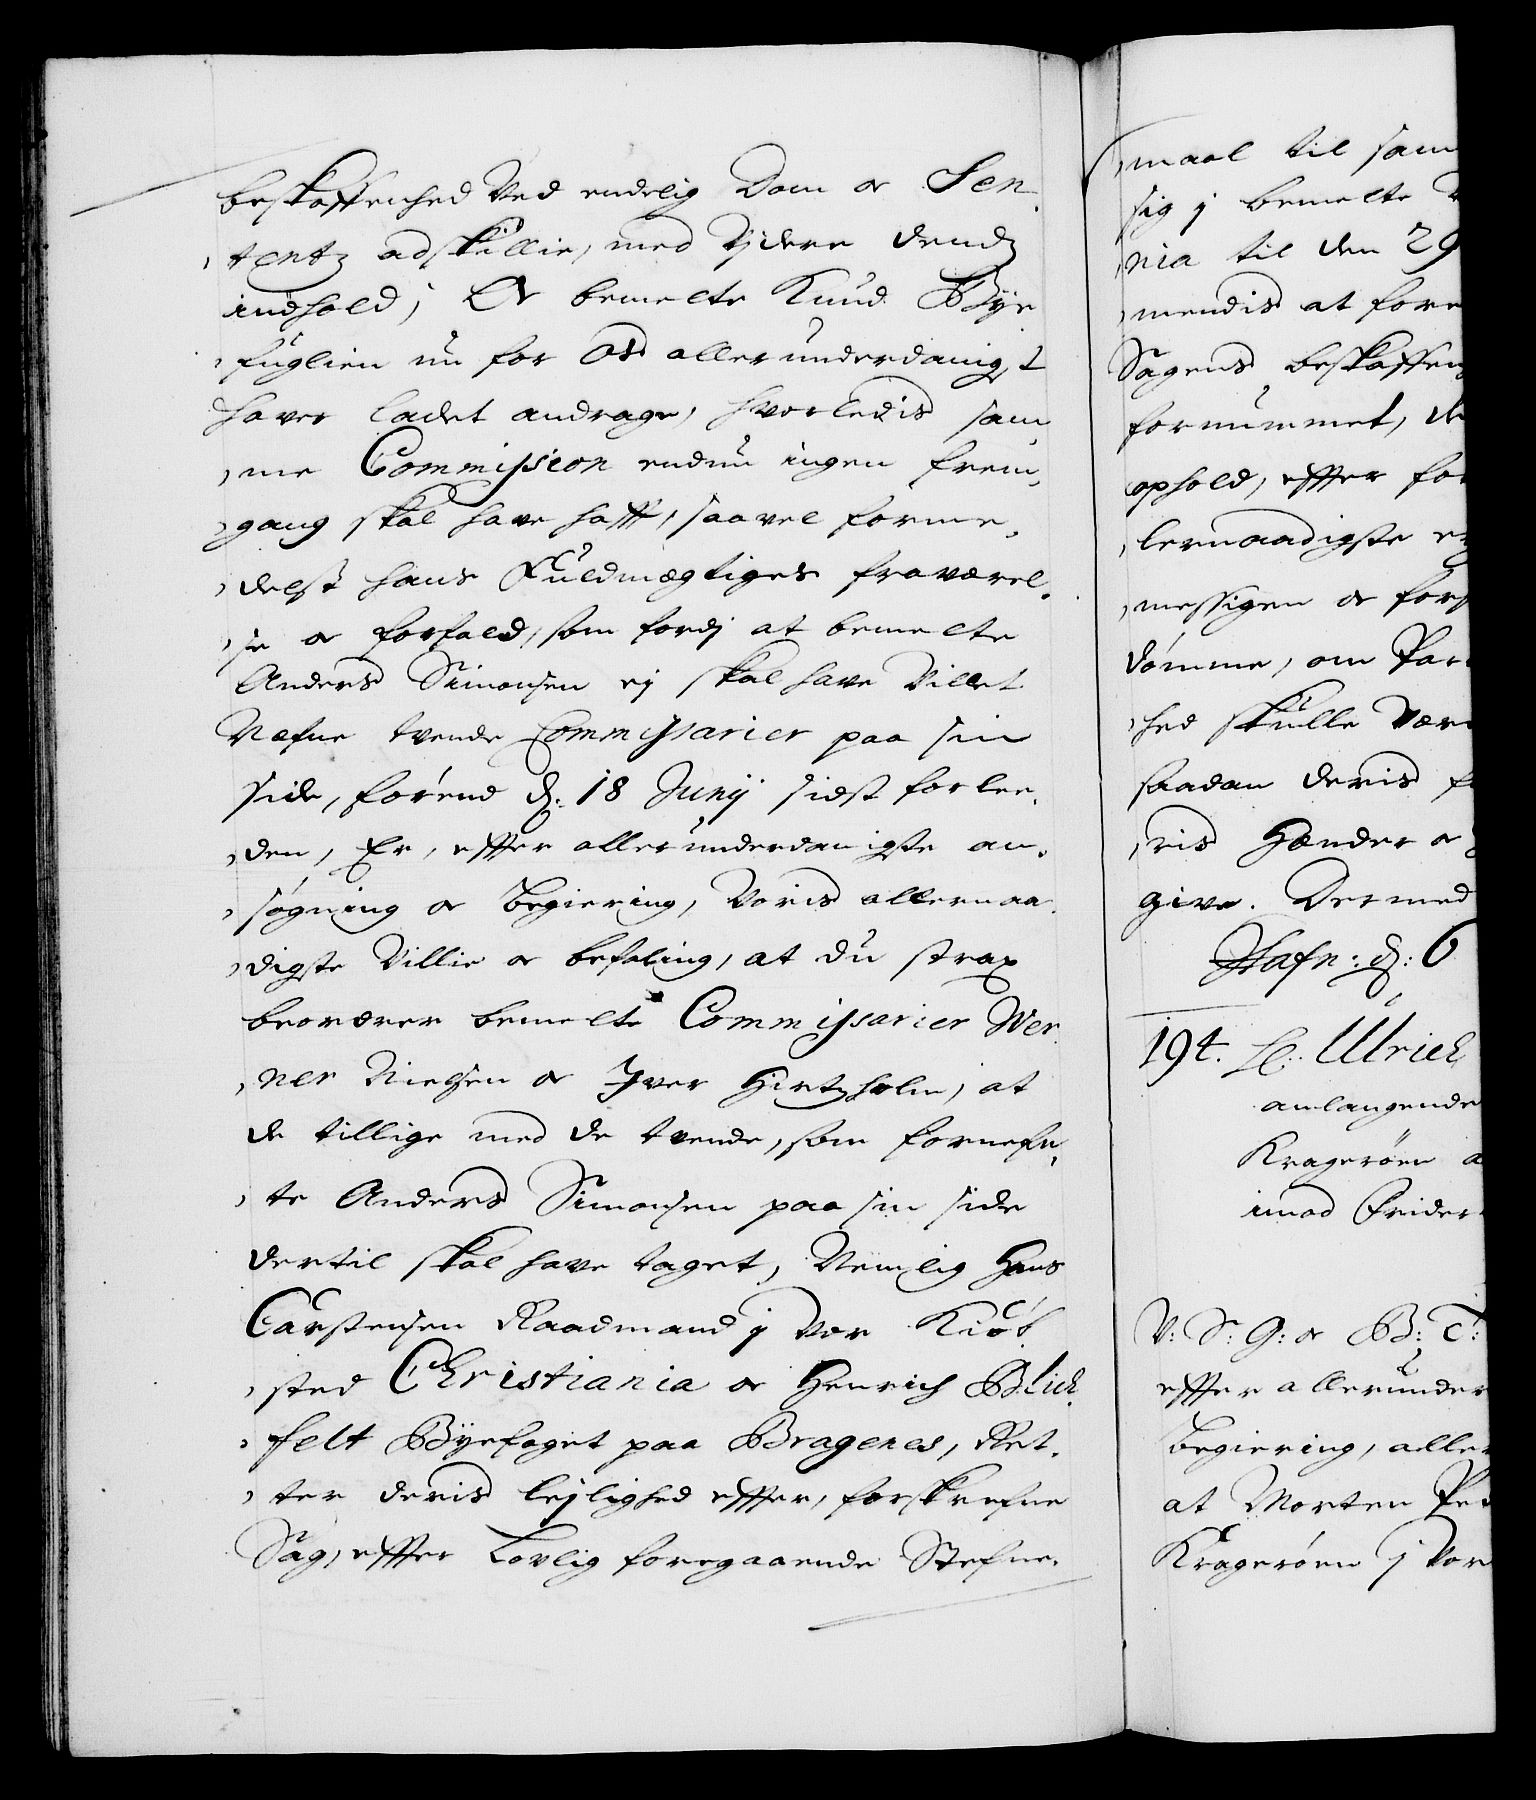 beskaffenhed Ved endelig Dom oc Sen-
tentz adskillie, med Videre dends
indhold; Oc bemelte Knud Bÿe
fuglien nu for Os allerunderdanigst
haver ladet andrage, hvorledis sam-
me Commission endnu ingen frem-
gang skal have hafft, saavel forme-
delst hans Fuldmægtiges fraværel-
se oc forfald, som fordj at bemelte
Anders Simonsen ej skal have Villet
Nefne tvende Commissarier paa sin
side, førend d: 18 Junij sidst forlee-
den, Er, effter allerunderdanigste an-
søgning oc Begiering, Voris allernaa-
digste Villie oc befaling, at du strax
beordrer bemelte Commissarier Wer-
ner Nielsen oc Iver Hirtzholm, at
de tillige med de tvende, som fornefn-
te Anders Simonsen paa sin side
dertil skal have taget, Nemlig Hans
Carstensen Raadmand j Vor Kiøb-
sted Christiania oc Henrich Blich-
felt Bÿefoget paa Bragenes, Ret-
ter deris lejlighed effter, forskrefne
Sag, effter Lovlig foregaaende Stefne-
maal til sam
sig j bemelte
nia til den 29
mendis at fore
Sagens beskaffen
fornummet, de
ophold, effter for
lernaadigste
messigen oc fors
dømme, om Par
hed skulle Vær
saadan deris f
ris Hænder oc
give. Dermed
Hafn: d: 6
194. Ulrich
anlangende
Kragerøen a
imod Frider
V: S: G: oc B: T:
effter allerunder
Begiering, aller
at Morten Pe
Kragerøen j Vor